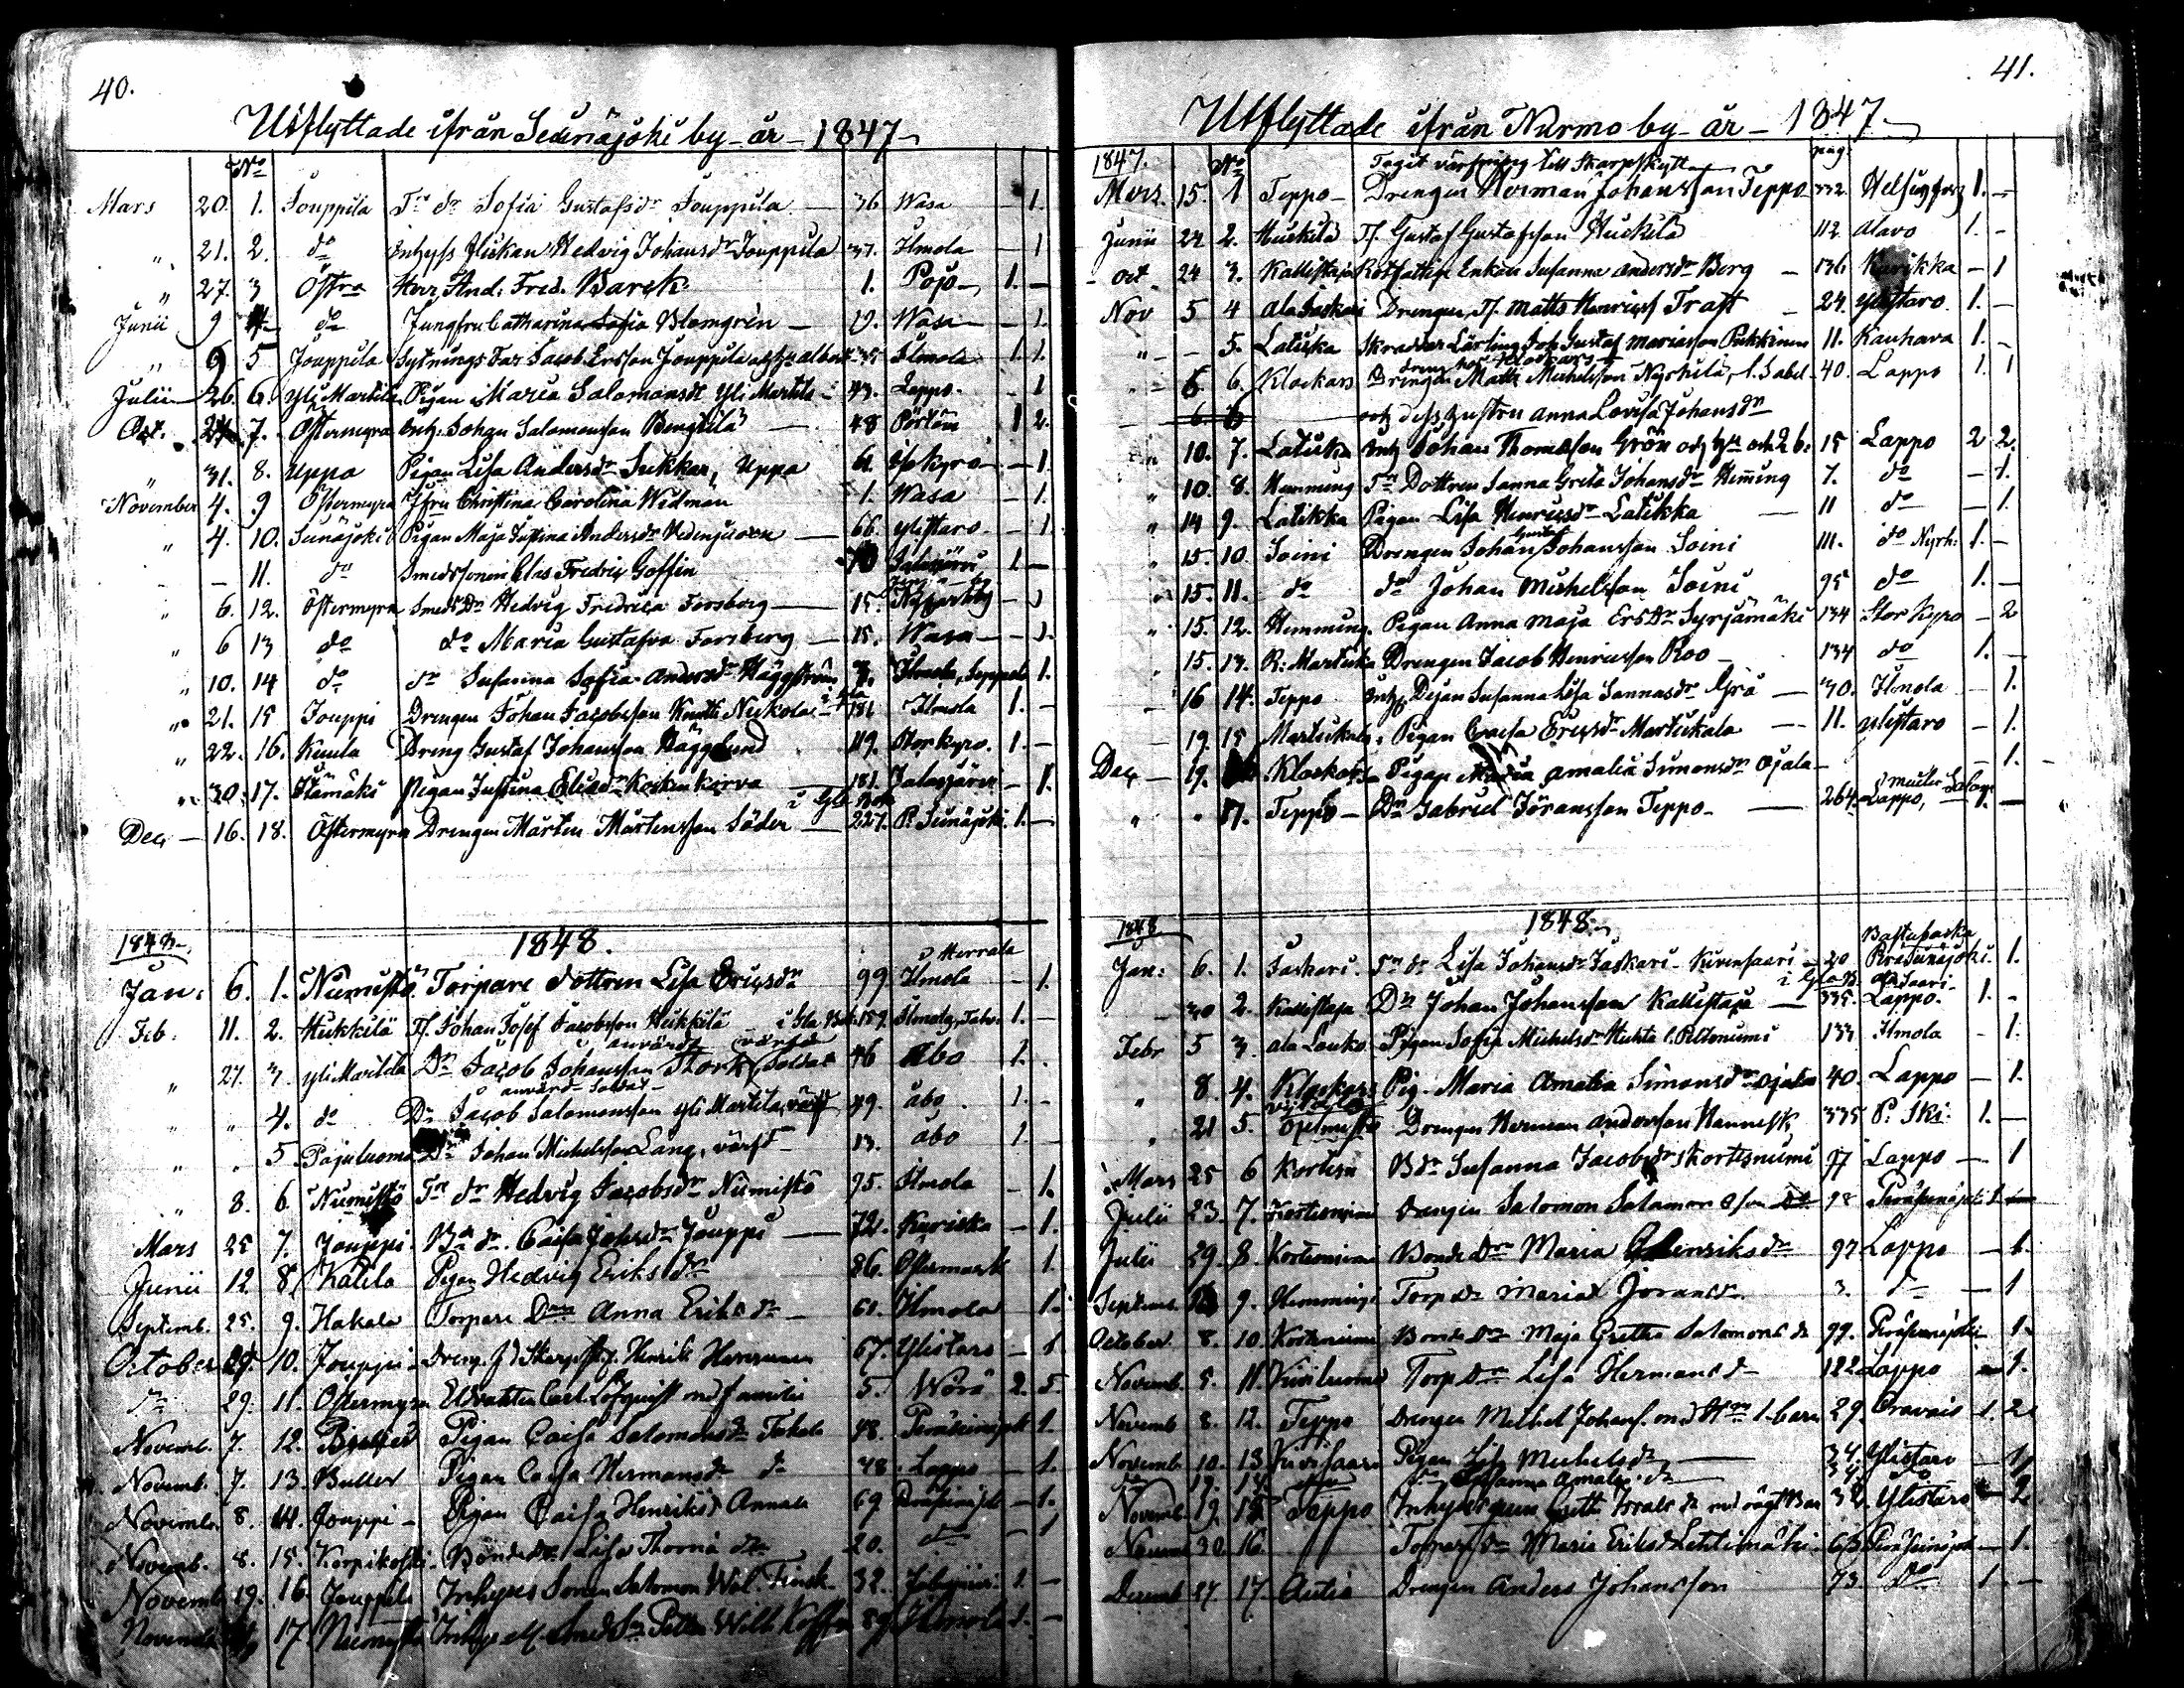 40.
Utflyttade ifrån Seinäjoki by - år - 1847
No
Mars 20. 1. Jouppila Tn dr Sofia Gustafsdr Jouppila — 36 Wasa — 1.
" 21. 2. do Inhyss flickan Hedvig Johansdr Jouppila 37. Ilmola — 1
" 27. 3 Östra Herr And. Fred. Barck 1. Pojo 1. —
Junii 9 4 do Jungfru Catharina Sofia Blomgrén — 19. Wasa — 1.
" 9 5 Jouppila Sytnings Far Jacob Ersson Jouppila Ilmola 1. 1.
Julii 26. 6. Yli Martila Pigan Maria Salomonsdr Yli Martila 43. Lappo. — 1
Oct. 24 7. Östermyra Inh: Johan Salomonsson Bengtilä — 48 Pörtom 1 2.
" 31. 8. Uppa Pigan Lisa Andersdr Sukkar, Uppa 61. Storkyro — 1.
November 4. 9 Östermyra Jfru Christina Carolina Widman 1. Wasa — 1.
" 4. 10. Seinäjoki Pigan Maja Justina Andersdr 66. Ylistaro — 1.
— 11. do Smedssonen Clas Fredric Goffin 70 Jalasjärvi 1. —
" 6. 12. Östermyra Smeds Dr Hedvig Fredrica Forsberg — 15.
" 6 13 do do Maria Gustafva Forsberg — 15. Wasa — 1.
" 10. 14 do dr Susanna Sofia Andersdr Häggström 7. Ilmola, 1.
" 21. 15 Jouppi Drengen Johan Jacobsson Knutti Nickola 181 Ilmola 1. —
" 22. 16. Kuula Dreng Gustaf Johansson Hägglund 119. Storkyro. 1. —
" 30. 17. Itämäki Pigan Justina Eliædr Koskenkorva 181. Jalasjärvi — 1.
i Gla Bok
Dec — 16. 18. Östermyra Drengen Mårten Mårtensson Söder — 227. P. Seinäjoki. 1. —
1848. 1848.
Jan: 6. 1. Niemistö Torpare dottren Lisa Ericsdr 99. Ilmola — 1.
Feb: 11. 2. Heikkilä Tf. Johan Josef Jacobsson Heikkilä i Gla Bok 159. Ilmola, 1. —
" 27. 3 yli Martila Dn Jacob Johansson Stork, Soldat 46 Åbo 1.
använd Soldat
" " 4. do Dn Jacob Salomonsson yli Martila, värf 49. åbo 1. —
" " 5 Pajuluoma Dn Johan Michelsson Lång, värft 13. åbo 1. —
" 8. 6 Niemistö Tn dr Hedvig Jacobsdr Niemistö 95. Ilmola — 1.
Mars 25 7. Jouppi Bn dr. Caisa Johsdr Jouppi — 72. Kurikka — 1.
Junii 12 8. Katila Pigan Hedvig Eriksdr 86. Östermark 1.
Septemb. 25. 9. Hakala Torpare Dren Anna Eriksdr — 61. Ilmola 1.
October 29. 10. Jouppi Dreng. Henrik Herrmann 67. Ylistaro — 1
do 29. 11. Östermyra Eldvakten Carl Löfquist med familie 5. Wörå 2. 5.
Novemb. 7. 12. Pigan Caisa Salomonsdr 48. Peräseinäjoki 1.
Novemb. 7. 13. Buller Pigan Caisa Hermansdr do 48. Lappo — 1.
Novemb. 8. 14. Jouppi — Pigan Caisa Henriksd Annala 69 Peräseinäj. — 1.
Novemb. 8. 15. Korpikoski Bondedr Lisa Thoma dr 20. do — 1
Novemb 19. 16. Jouppila Inhyses Sonen Salomon Wil. Finsk. 32. Jalasjärvi 1. —
Novemb 17. Niemistö Wilh. Ilmola 1. —
41.
Utflyttade ifrån Nurmo by - år - 1847.
1847. No Tagit värfning till Skarpskytt pag:
Mars. 15. 1 Teppo — Drengen Herman Johansson Teppo 332. Helsingfors 1. —
Junii 24 2. Huckila Tf. Gustaf Gustafsson Huckila 112 Alavo 1. —
Oct. 24 3. Kallistaja Rotfattige Enkan Susanna Andersdr Berg — 136 Kurikka — 1
Nov 5 4 Ala Jaskari Drengen, Tf. Matts Henricss Trast — 24. Ylistaro. 1. —
" — 5. Latikka Skraddar Lärling Joh. Gustaf Mariasson Pukkinen 11. Kauhava 1. —
6. 6. Klockars Drengen Matts Michelsson Nyrhilä, 40. Lappo 1. 1
6 6 och dess hustru Anna Lovisa Johansdr
10. 7. Latikka Inh Johan Thomasson Grön och hu och 2 b: 15 Lappo 2 2.
" 10. 8. Hemming Tn Dottren Sanna Greta Johansdr Hemming 7. do — 1.
" 14 9. Latikka Pigan Lisa Henricsdr Latikka — 11 do — 1.
" 15. 10. Soini Drengen Johan Gustaf Johansson Soini 111. do Nyrh: 1. —
" 15. 11. do do Johan Michelsson Soini 95 do 1. —
" 15. 12. Hemming. Pigan Anna Maja Ersdr Syrjämäki 134 Stor Kyro — 2
15. 13. R: Martikka Drengen Jacob Henricsson Roo — 134 do 1. —
16 14. Teppo Inh. Pigan Susanna Lisa Sannasdr Grå — 30. Ilmola — 1.
19. 15 Martikala. Pigan Caisa Ericsdr Martikala — 11. Ylistaro — 1.
Dec — 19. Klockars Pigan Maria Amalia Simonsdr Ojala — — 1.
" " 17. Teppo — Dn Gabriel Göransson Teppo — 264. Lappo, 1. —
1848 1848.
Jan: 6. 1. Jaskari. Tn dr Lisa Johansdr Jaskari - Kivensaari — 20 Peräseinäjoki. 1.
30 2. Kallistaja Dn Johan Johansson Kallistaja — 335. Lappo. 1. —
Febr 5 3. Ala Louko Pigan Sofia Michelsdr Huhta l. Peltoniemi 133 Ilmola — 1.
" 8. 4. Klockars Pig. Maria Amalia Simonsdr Ojala 40. Lappo — 1.
" 21 5. Drengen Herman Andersson Hannuks 335 P. Ski: 1. —
Mars 25 6 Kortesn Bdr Susanna Jacobsdr Kortesniemi 97 Lappo — 1
Julii 23. 7. Kortesniemi Drengen Salomon Salomonsson 98 Peräseinäjoki 1. —
Julii 29. 8. Kortesniemi Bonde Dr Maria Henriksdr 97 Lappo — 1.
Septemb. 9. Hemmings Torp dr Maria Joransdr 3. do — 1
October 8. 10. Kortesniemi Bonde Dr Maja Gretha Salomonsdr 99. Peräseinäjoki 1.
Novemb. 5. 11. Viitaluoma Torp Dr Lisa Hermansdr 122 Lappo — 1.
Novemb 8. 12. Teppo Drengen Michel Johanss. med Hru 1. barn 29. Oravais 1. 2.
Novemb. 10. 13 Kivisaari Pigan Lisa Michelsdr — 34. Ylistaro — 1
do 19. 14. do Susanna Amalia dr — 34 do 1
Novemb. 19. 15 Teppo Inhyses med oägt Barn 32. Ylistaro — 2.
Novemb 30. 16. Torpars dr Maria Eriksd Lehtimäki 63 Peräseinäjoki — 1.
Decemb 27. 17. Autio Drengen Anders Johansson 73. Do 1. —